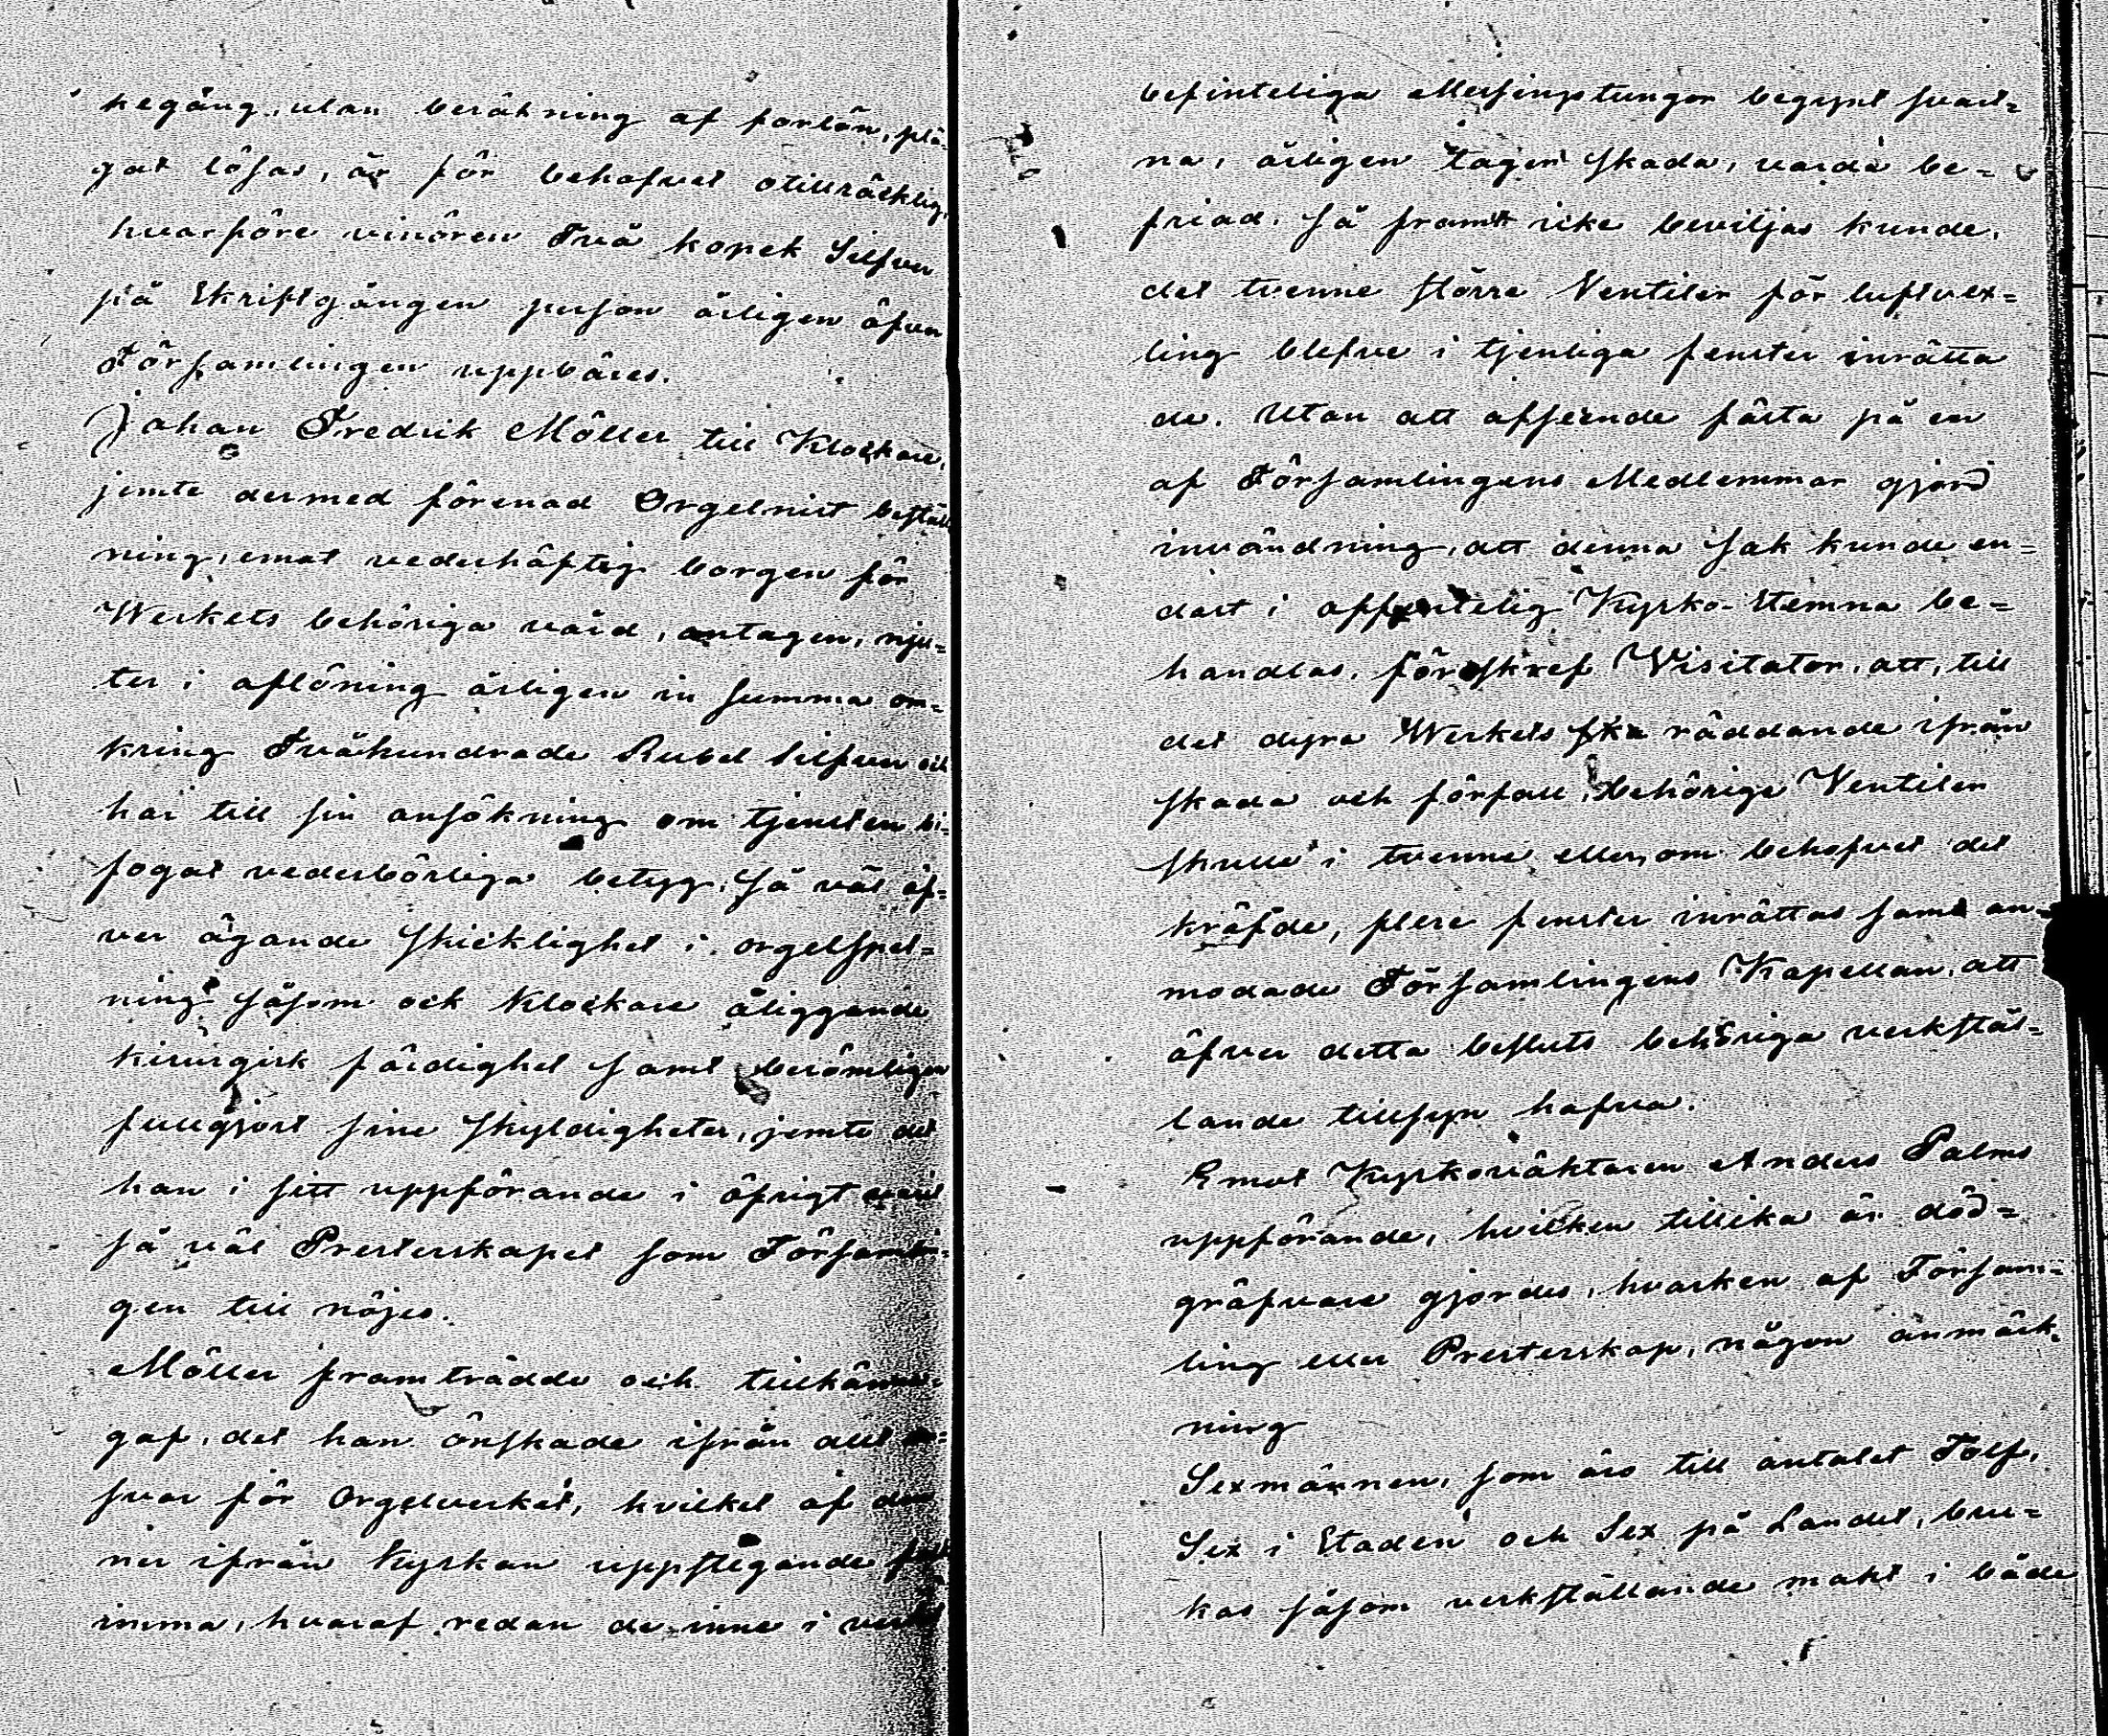 kegång, utan beräkning af forlön, plä-
gat lösas, är för behofvet otillräcklig,
hvarföre vinören Två kopek Silfver
på Skriftgången person årligen äfven
Församlingen uppbäres.
Johan Fredrik Möller till Klockare,
jemte dermed förenad Orgelnist beställ
ning, emot vederhäftig borgen för
Werkets behöriga vård, antagen, nju-
ter i aflöning årligen in summa om-
kring Tvåhundrade Rubel Silfver och
har till sin ansökning om tjensten bi-
fogat vederbörliga betyg, så väl öf-
ver ägande skicklighet i orgelspel-
ning såsom ock Klockare åliggande
kirurgisk färdighet samt berömligen
fullgjort sine skyldigheter, jemte det
han i sitt uppförande i öfrigt varit
så väl Presterskapet som Församlin-
gen till nöjes.
Möller framträdde och tillkänna-
gaf, det han önskade ifrån allt an-
svar för Orgelverket, hvilket af den
ner ifrån Kyrkan uppstigande
imma, hvaraf redan de inne i verket
befinteliga Messingstungor begynt svart-
na, årligen tager skada, varda be-
friad, så framt icke beviljas kunde,
det tvenne större Ventiler för luftvex-
ling blefve i tjenliga fenster inrätta
de. Utan att afseende fästa på en
af Församlingens Medlemmar gjord
invändning, att denna sak kunde en-
dast i offentelig Kyrko-Stemna be-
handlas, föreskref Visitator, att, till
det dyra Werkets räddande ifrån
skada och förfall, behörige Ventiler
skulle i tvenne eller, om behofvet det
kräfde, flere fenster inrättas samt an-
modade Församlingens Kapellan, att
öfver detta besluts behöriga verkstäl-
lande tillsyn hafva.
Emot Kyrkoväktaren Anders Palms
uppförande, hvilken tillika är död-
gräfvare gjordes, hvarken af Försam-
ling eller Presterskap, någon anmärk-
ning
Sexmännen, som äro till antalet Tolf,
Sex i Staden och Sex på Landet, bru-
kas såsom verkställande makt i både